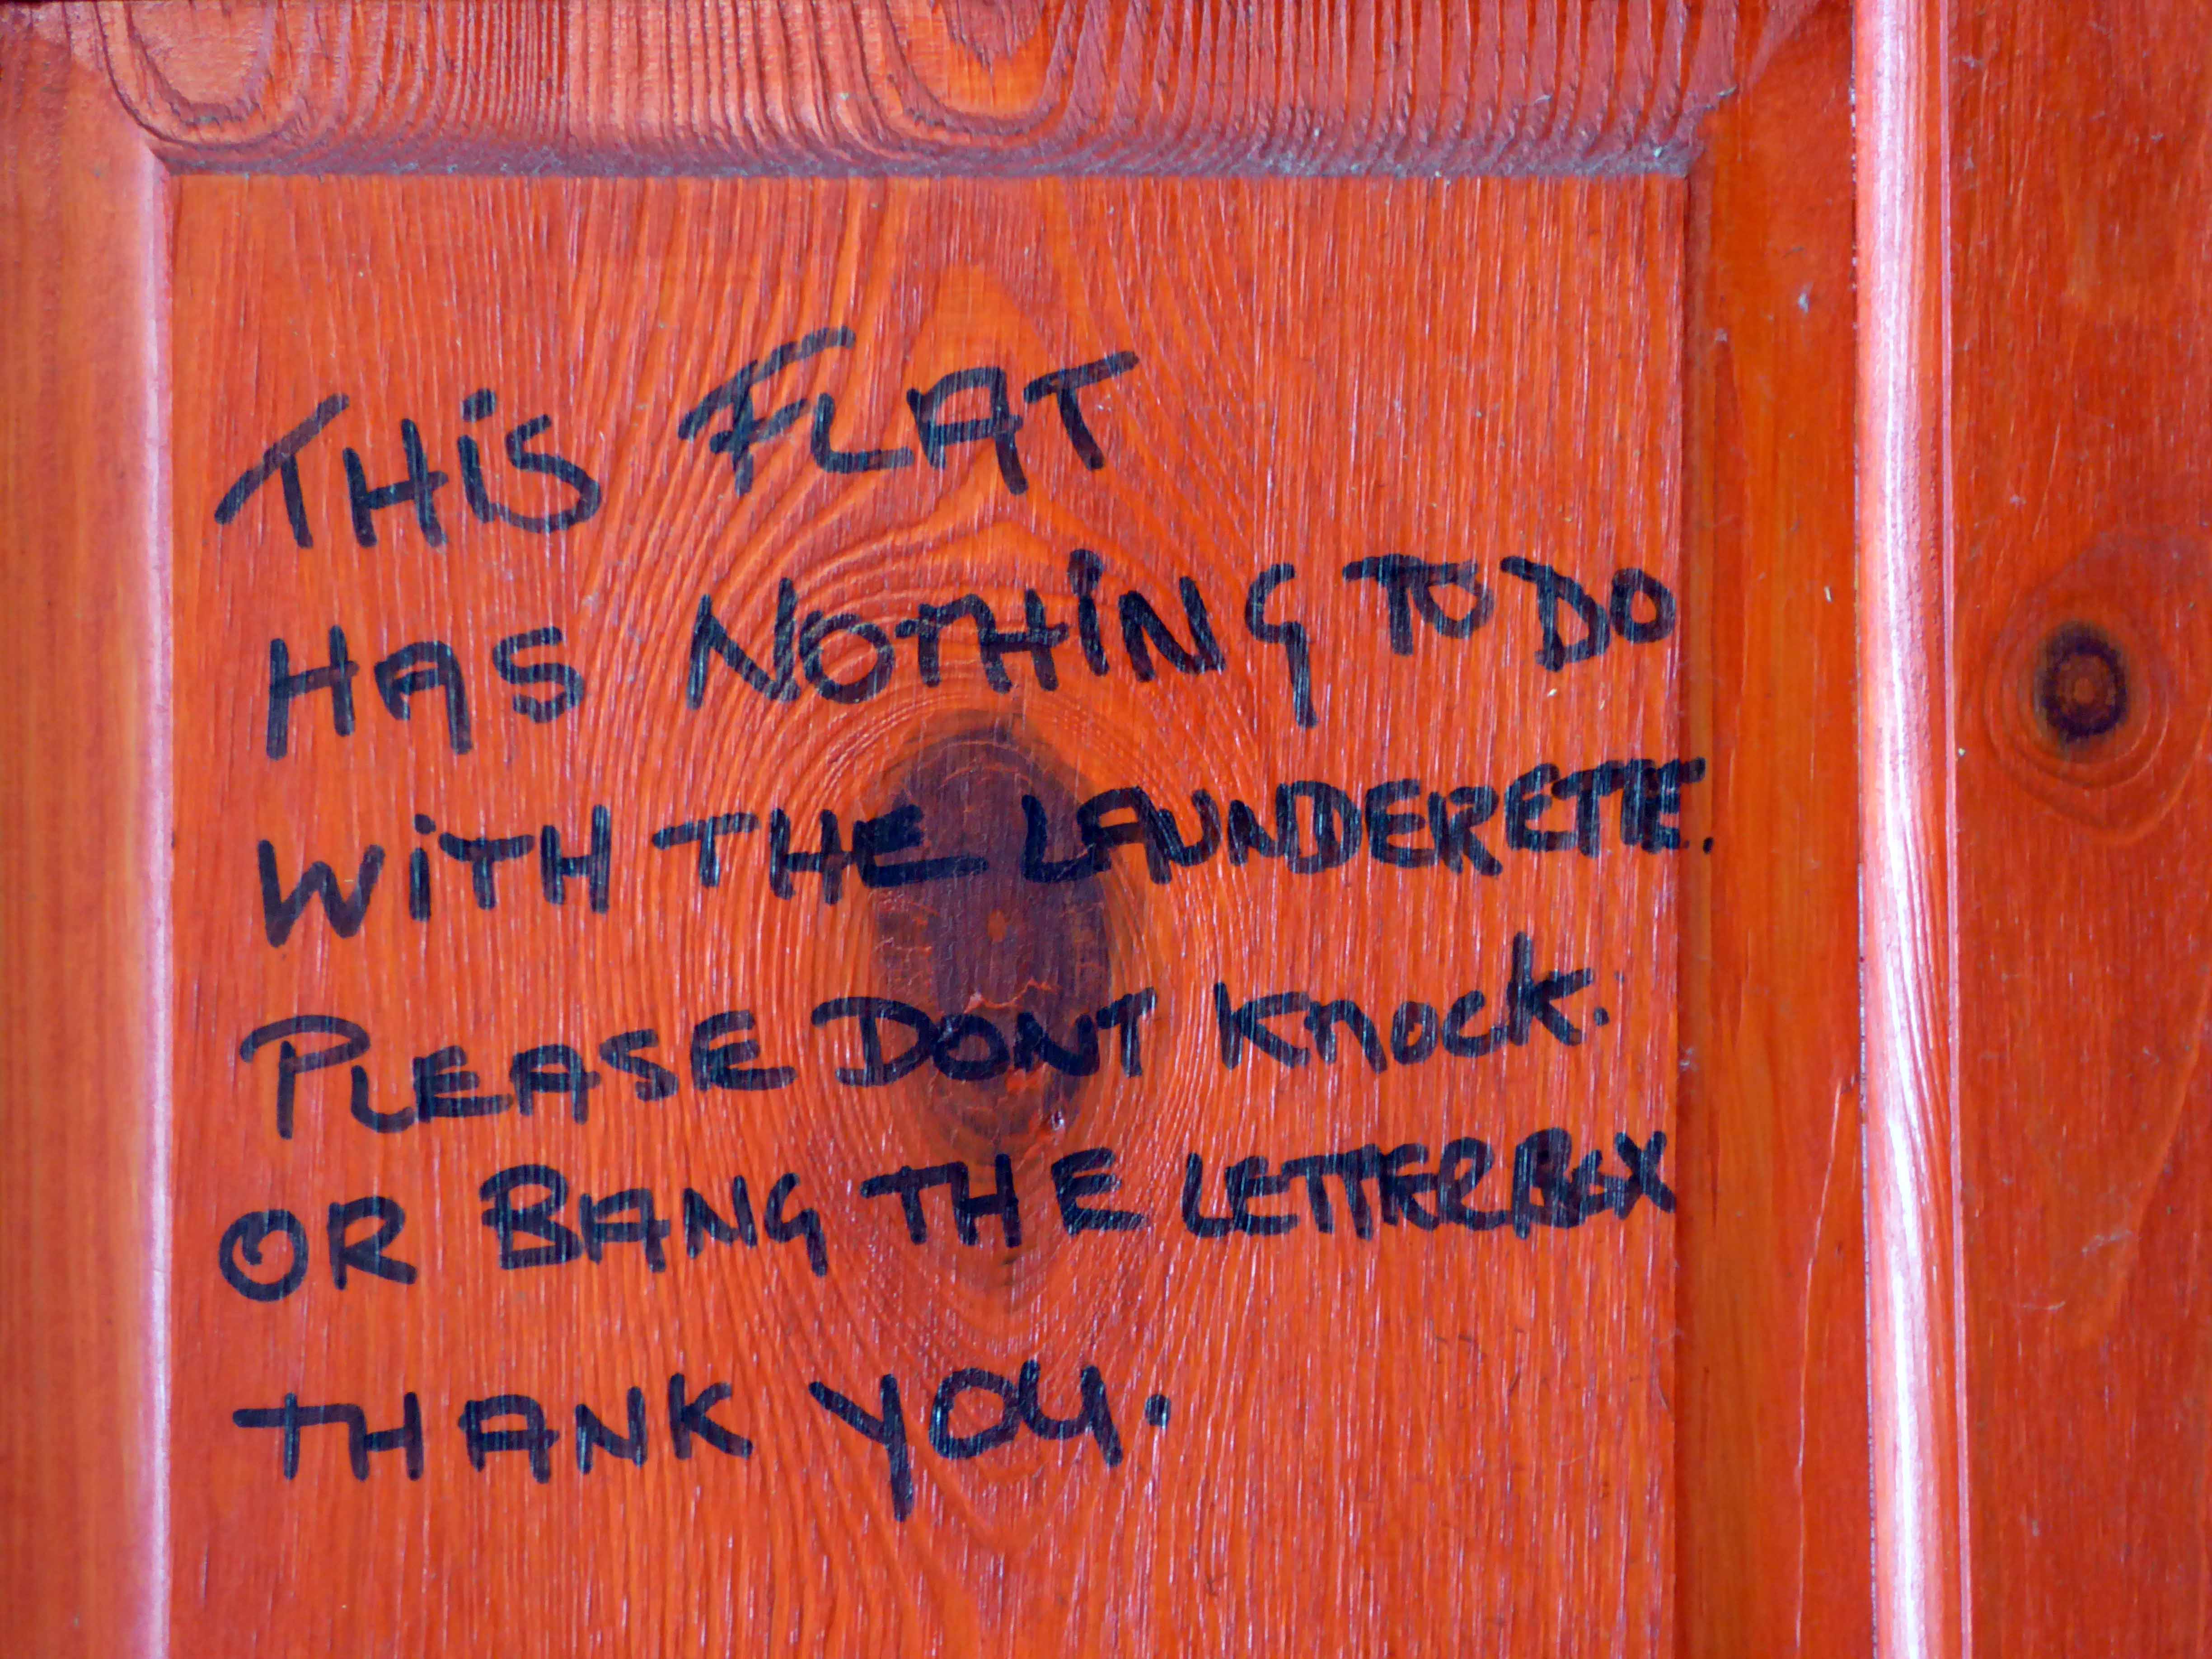 THiS FLAT
HAS NOTHiNG TO DO
WiTH THE LAUNDERETTE.
PLEASE DONT Knock.
OR BANG THE LETTERBOX
THANK YOU.